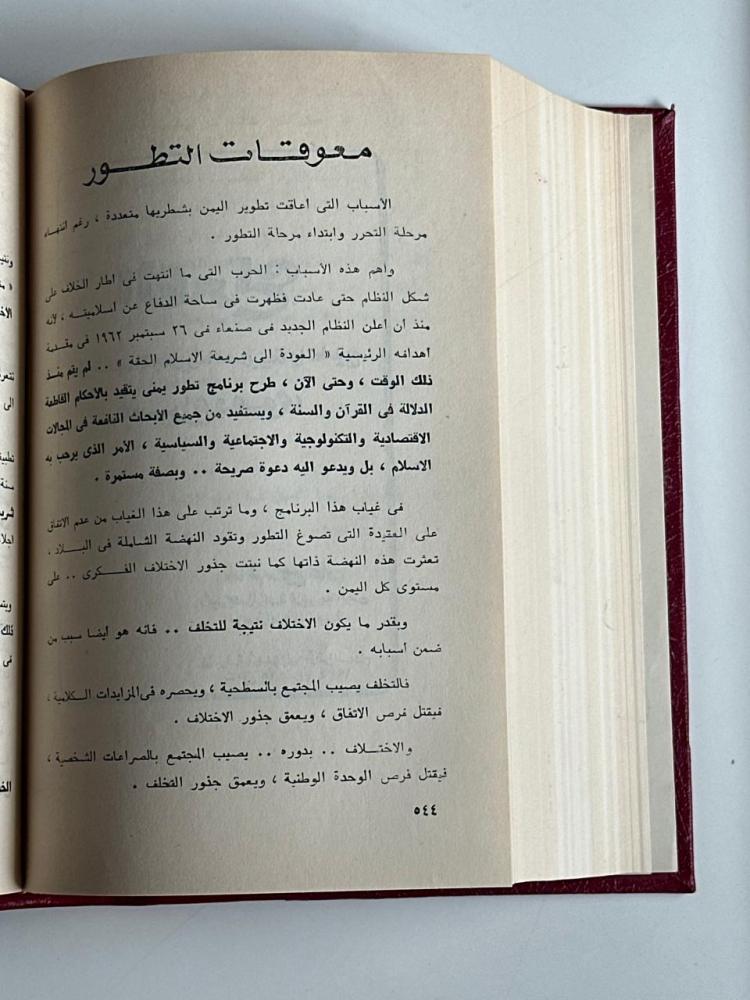 معوقات التطور
الأسباب التى اعاقت تطوير اليمن بشطريها متعددة ، رغم انتهاء
مرحلة التحرر وابتداء مرحلة التطور .
واهم هذه الأسباب : الحرب التى ما انتهت فى اطار الخلاف على
شكل النظام حتى عادت فظهرت فى ساحة الدفاع عن اسلاميته ، لأنه
منذ أن أعلن النظام الجديد فى صنعاء فى ٢٦ سبتمبر ١٩٦٢ فى مقدمة
أهدافه الرئيسية « العودة الى شريعة الاسلام الحقة » .. لم يقم منذ
ذلك الوقت ، وحتى الآن ، طرح برنامج تطور يمنى يتقيد بالأحكام القاطعة
الدلالة فى القرآن والسنة ، ويستفيد من جميع الأبحاث النافعة فى المجالات
الاقتصادية والتكنولوجية والاجتماعية والسياسية ، الأمر الذى يرحب به
الاسلام ، بل ويدعو اليه دعوة صريحة .. وبصفة مستمرة .
فى غياب هذا البرنامج ، وما ترتب على هذا الغياب من عدم الاتفاق
على العقيدة التى تصوغ التطور وتقود النهضة الشاملة فى البلاد .
تعثرت هذه النهضة ذاتها كما نبتت جذور الاختلاف الفكرى .. على
مستوى كل اليمن .
وبقدر ما يكون الاختلاف نتيجة للتخلف .. فانه هو أيضا سبب من
ضمن أسبابه .
فالتخلف يصيب المجتمع بالسطحية ، ويحصره فى المزايدات الكلامية ،
فيقتل فرص الاتفاق ، ويعمق جذور الاختلاف .
والاختلاف .. بدوره .. يصيب المجتمع بالصراعات الشخصية ،
فيقتل فرص الوحدة الوطنية ، ويعمق جذور التخلف .
٥٤٤